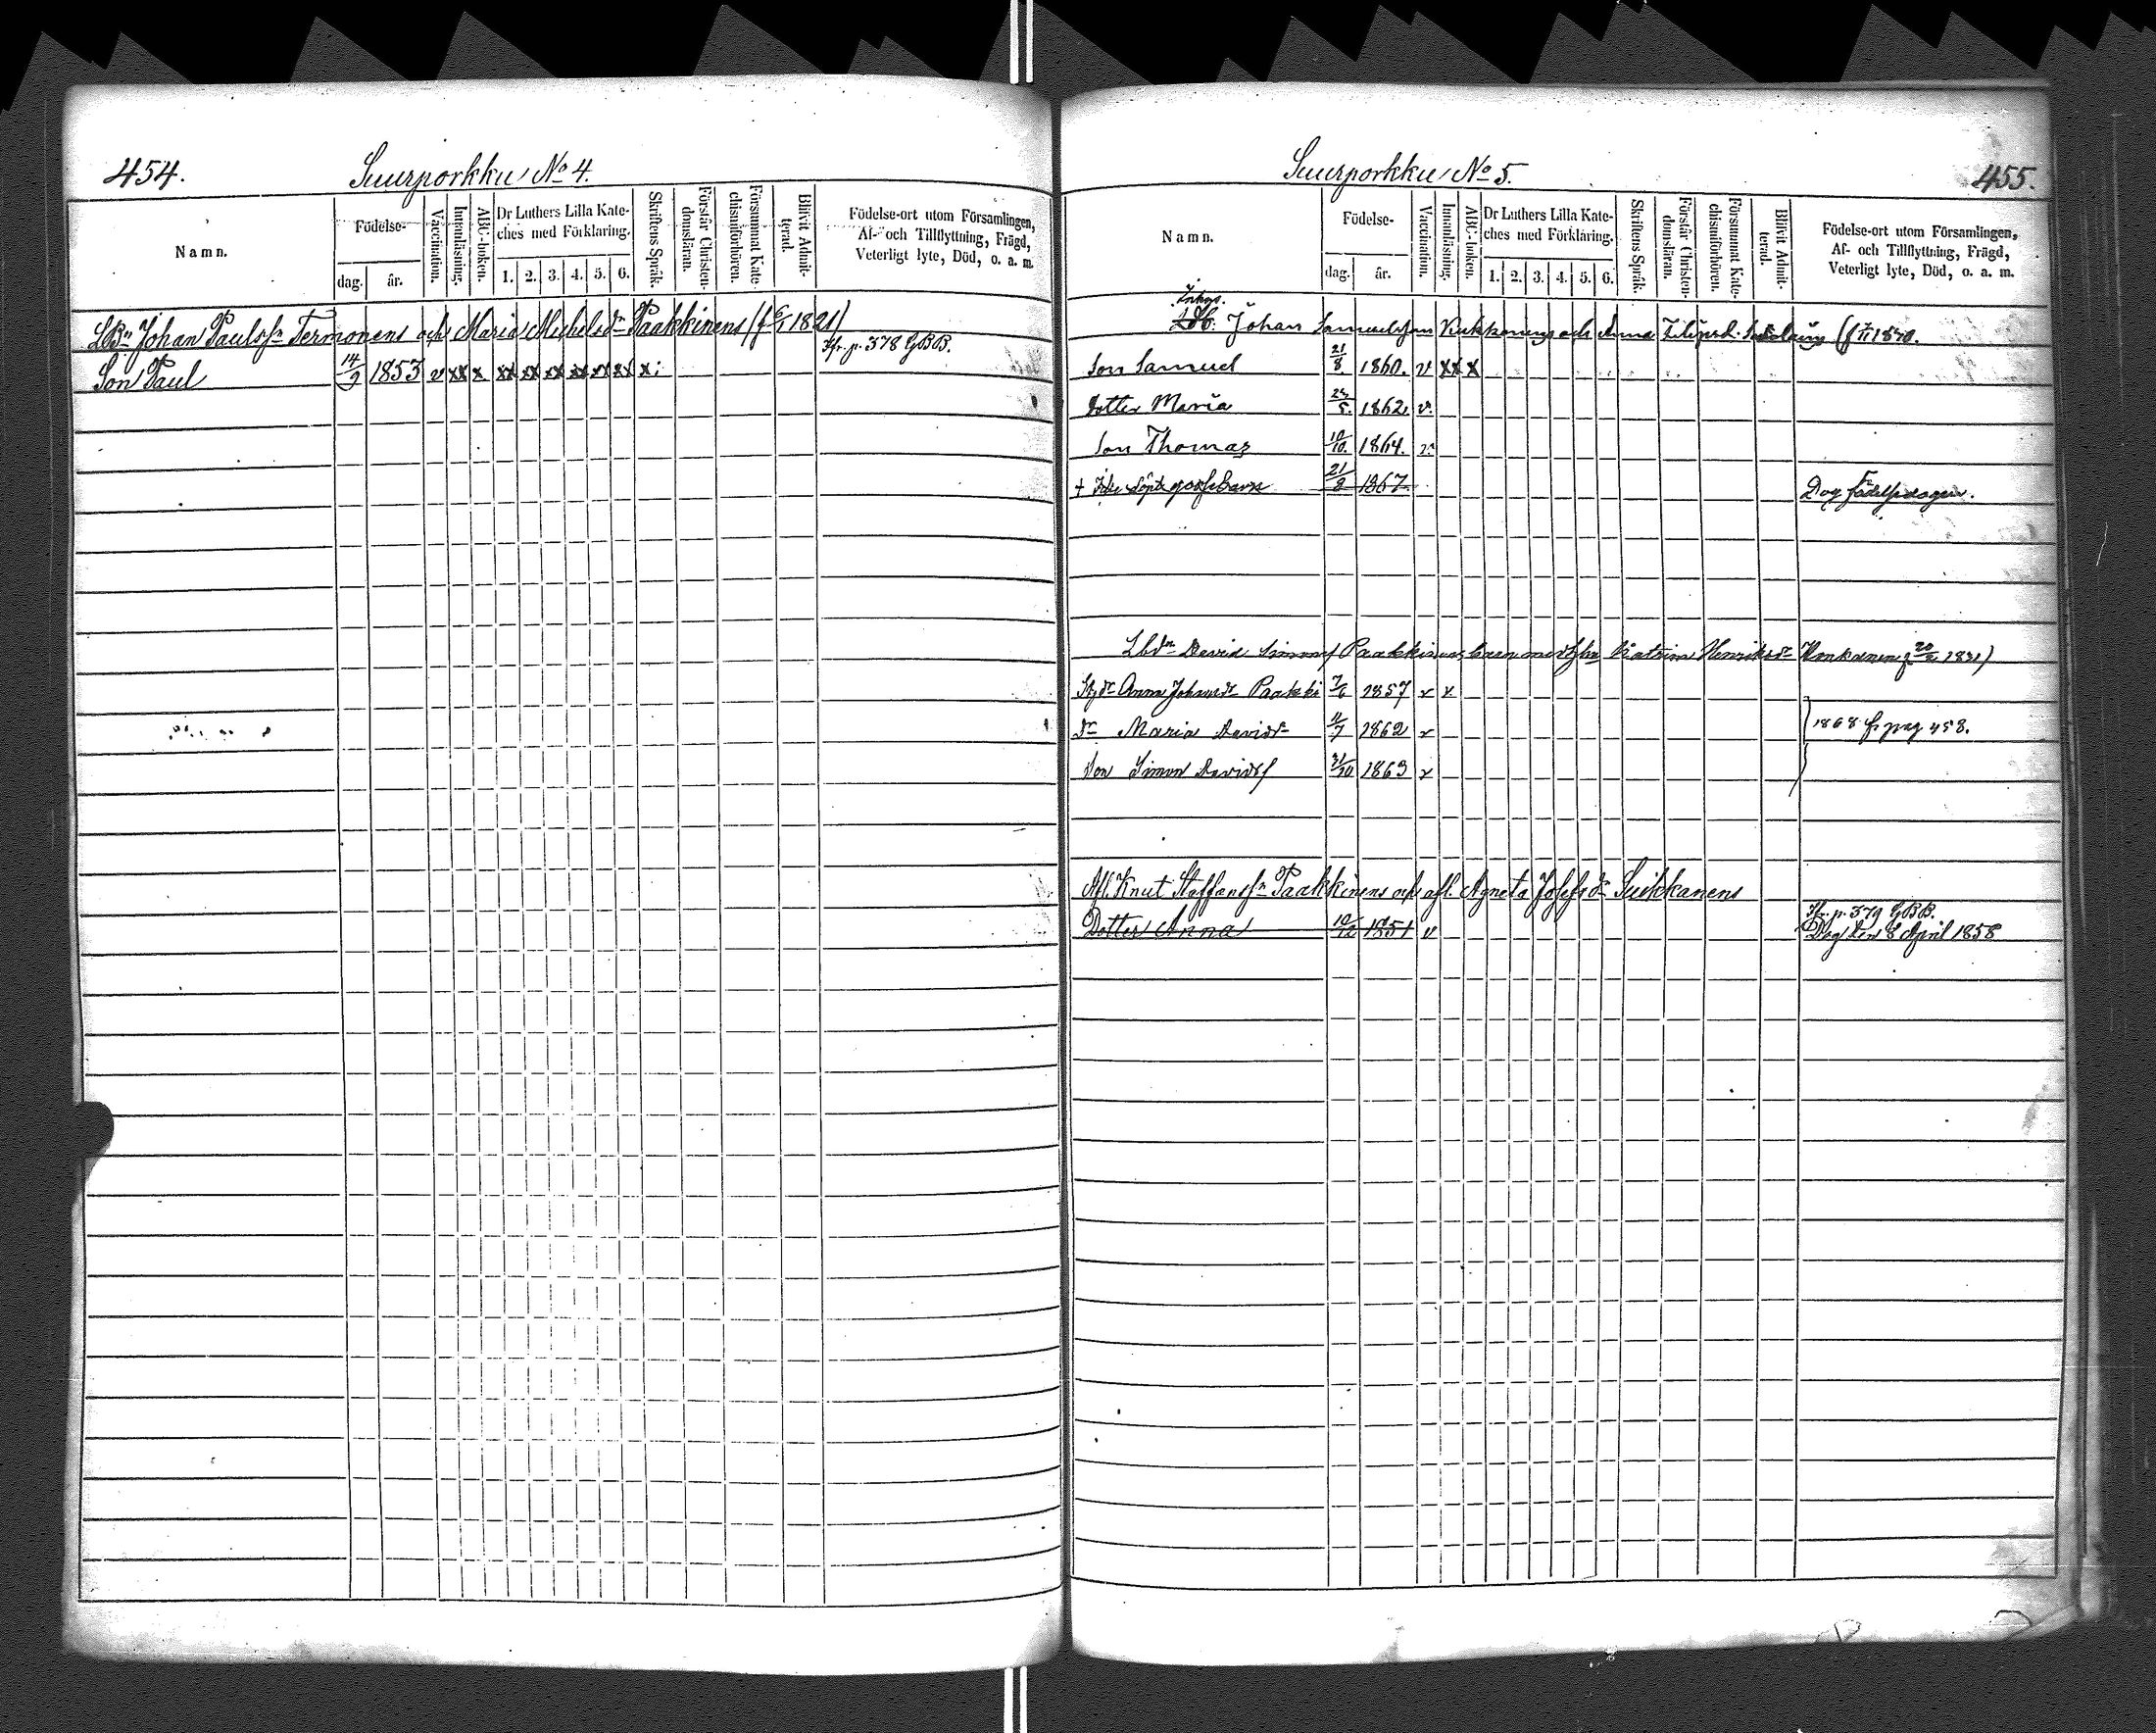 454.
Suurporkku No 4.
Namn.
Födelse-
dag.
år.
Vaccination.
Innanläsning.
ABC-boken.
Dr Luthers Lilla Kate-
ches med Förklaring.
1. 2. 3. 4. 5. 6.
Skriftens Språk.
Förstår Christen-
domsläran.
Försummat Kate-
chismiförhören.
Blifvit Admit-
terad.
Födelse-ort utom Församlingen,
Af- och Tillflyttning, Frägd,
Veterligt lyte, Död, o. a. m.
Johan Paulss:n Termonens och Maria Michelsd:r Paakkinens (f 6/1 1821)
Jfr. p. 378 GBB.
Son Paul 14/9 1853 v xx x xx xx xx xx xx xx x:
Suurporkku No 5.
455.
Namn.
Födelse-
dag.
år.
Vaccination.
Innanläsning.
ABC-boken.
Dr Luthers Lilla Kate-
ches med Förklaring.
1. 2. 3. 4. 5. 6.
Skriftens Språk.
Förstår Christen-
domsläran.
Försummat Kate-
chismiförhören.
Blifvit Admit-
terad.
Födelse-ort utom Församlingen,
Af- och Tillflyttning, Frägd,
Veterligt lyte, Död, o. a. m.
Inhys.
Johan Samuelsson och Anna
Son Samuel 21/8 1860. v xx x
Dotter Maria 1862 v.
Son Thomas 10/10. 1864. v
+ gossebarn 21/8 1867
Dog födelsedagen.
David Paakkinens barn med Katrin Henriksd:r 1831)
Anna Johansd:r Paakki 7/6 1857 v x
D:r Maria Davidd:r 11/7 1862 v
1868 fr pag 458.
Son Simon Davids 1863 v
Afl. Knut Staffanss:n Paakkinens och afl. Agneta Josefsd:r Suikkanens
Jfr. p. 379 GBB.
Dotter Anna 10/12 1851 v
Dog den 8 April 1858